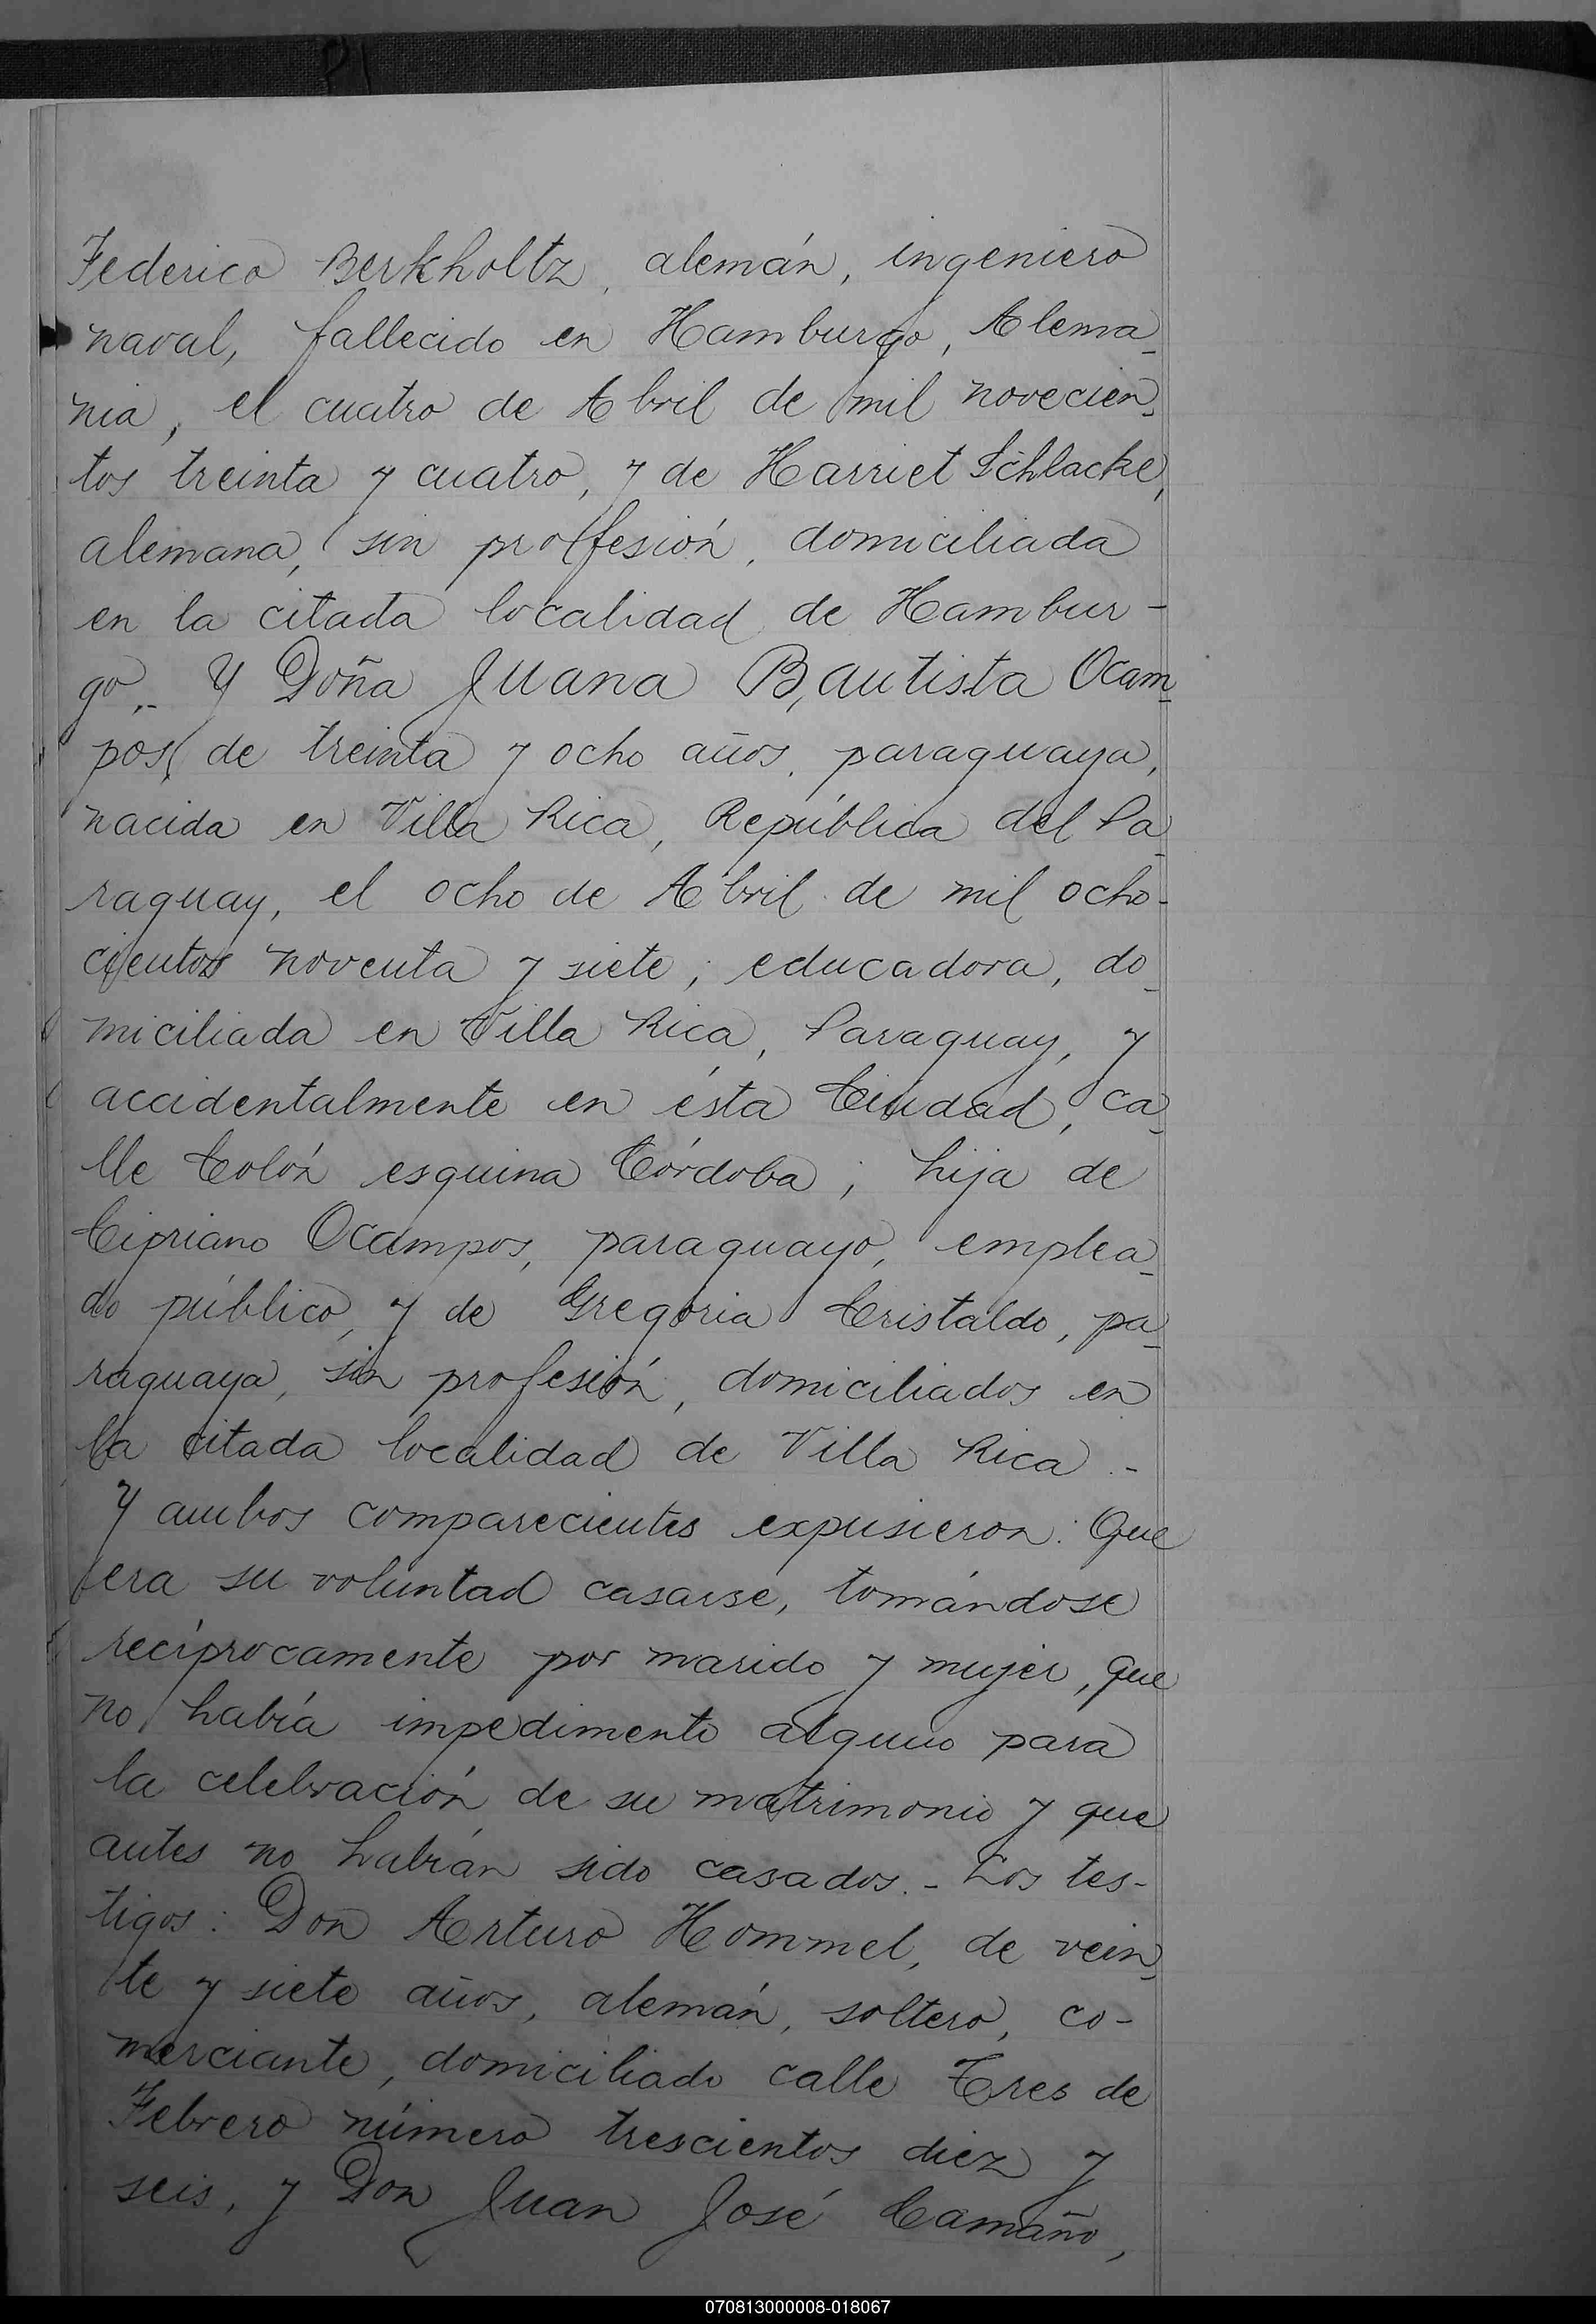 Federico Berkholtz, alemán, ingeniero
naval, fallecido en Hamburgo, Alema_
nia, el cuatro de Abril de mil novecien_
tos treinta y cuatro, y de Harriet Schlacke,
alemana, sin proffesión, domiciliada
en la citada localidad de Hambur-
go.- Y Doña Juana Bautista Ocam_
pos, de treinta y ocho años, paraguaya,
nacida en Villa Rica, República del Pa_
raguay, el ocho de Abril de mil ocho-
cientos noventa y siete; educadora, do_
miciliada en Villa Rica, Paraguay, y
accidentalmente en ésta Ciudad, ca_
lle Colón esquina Córdoba; hija de
Cipriano Ocampos, paraguayo, emplea_
do público, y de Gregoria Cristaldo, pa_
raguaya, sin profesión, domiciliados en
la citada localidad de Villa Rica.-
Y ambos comparecientes expusieron: Que
era su voluntad casarse, tomándose
recíprocamente por marido y mujer, que
no había impedimento alguno para
la celebración de su matrimonio y que
antes no habían sido casados.- Los tes-
tigos: Don Arturo Hommel, de vein_
te y siete años, alemán, soltero, co-
merciante, domiciliado calle Tres de
Febrero número trescientos diez y
seis, y Don Juan José Camaño,
070813000008-018067